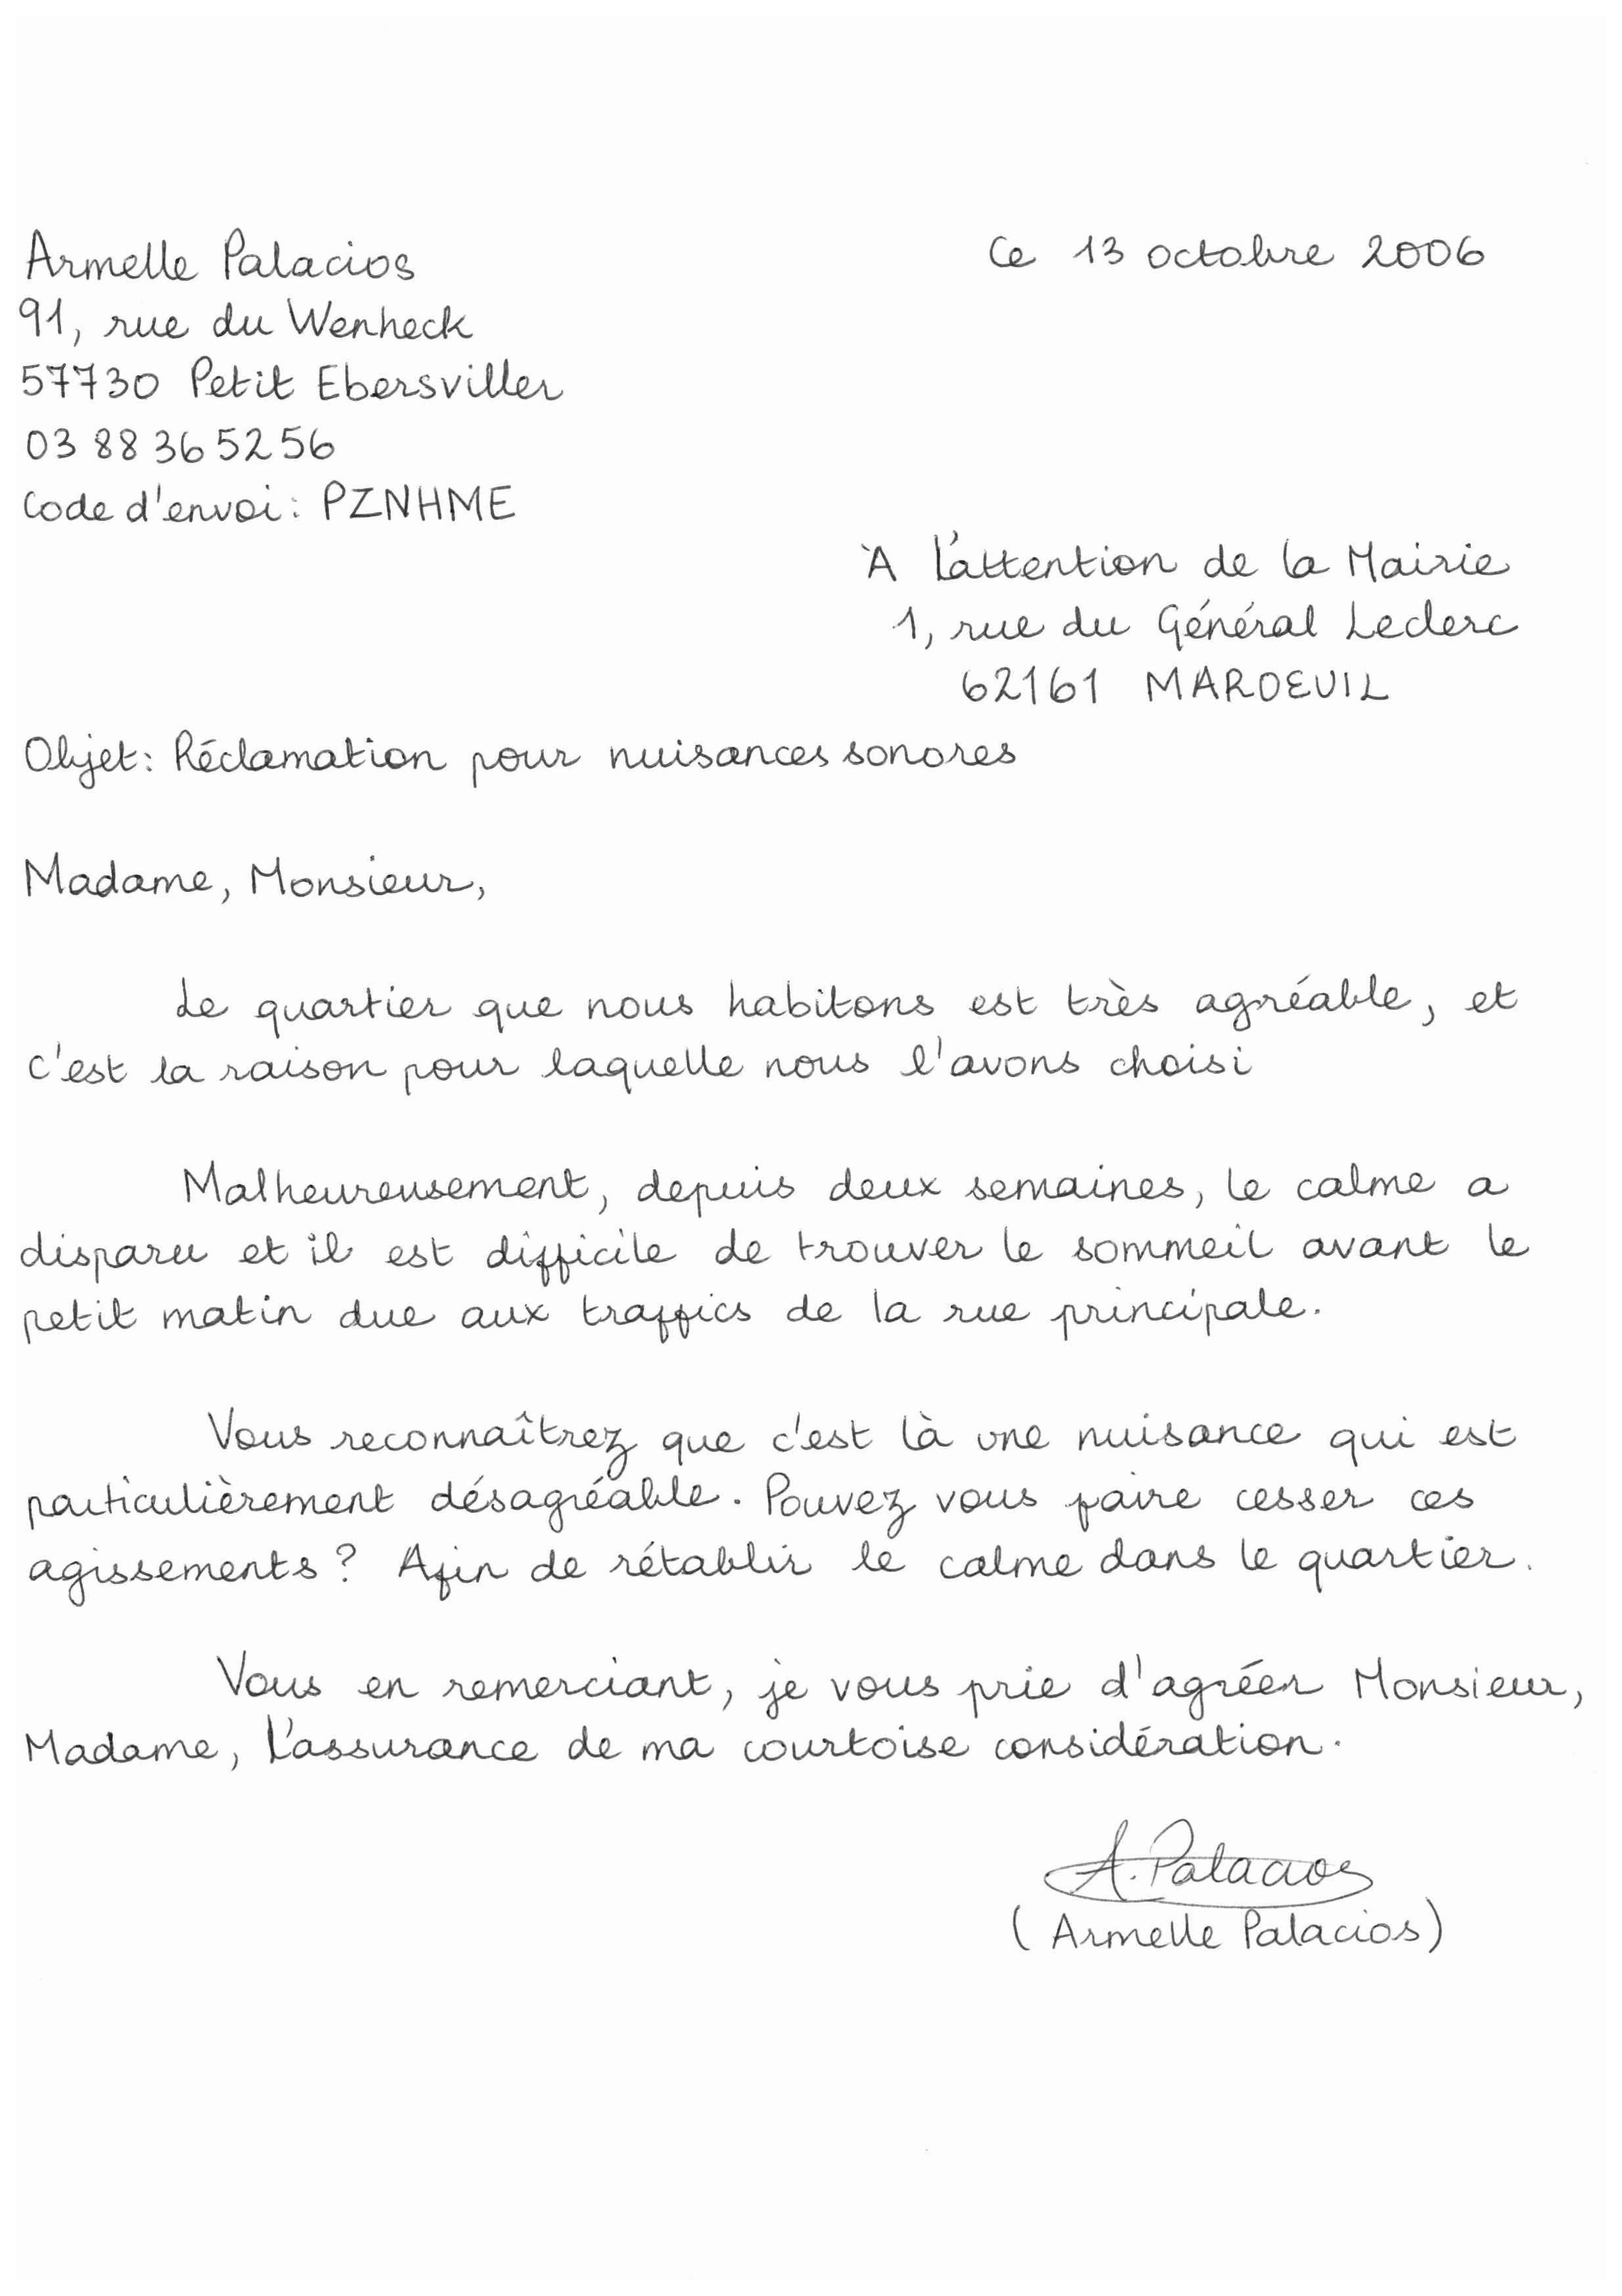 Armelle Palacios
Ce 13 octobre 2006
91, rue du Wenheck
57730 Petit Ebersviller
03 88 36 52 56
Code d'envoi : PZNHME
À L'attention de la Mairie
1, rue du Général Leclerc
62161 MAROEUIL
Objet : Réclamation pour nuisances sonores
Madame, Monsieur,
Le quartier que nous habitons est très agréable, et
c'est la raison pour laquelle nous l'avons choisi
Malheureusement, depuis deux semaines, le calme a
disparu et il est difficile de trouver le sommeil avant le
petit matin due aux traffics de la rue principale.
Vous reconnaîtrez que c'est là une nuisance qui est
particulièrement désagréable. Pouvez vous faire cesser ces
agissements ? Afin de rétablir le calme dans le quartier.
Vous en remerciant, je vous prie d'agréer Monsieur,
Madame, L'assurance de ma courtoise considération.
A. Palacios
(Armelle Palacios)